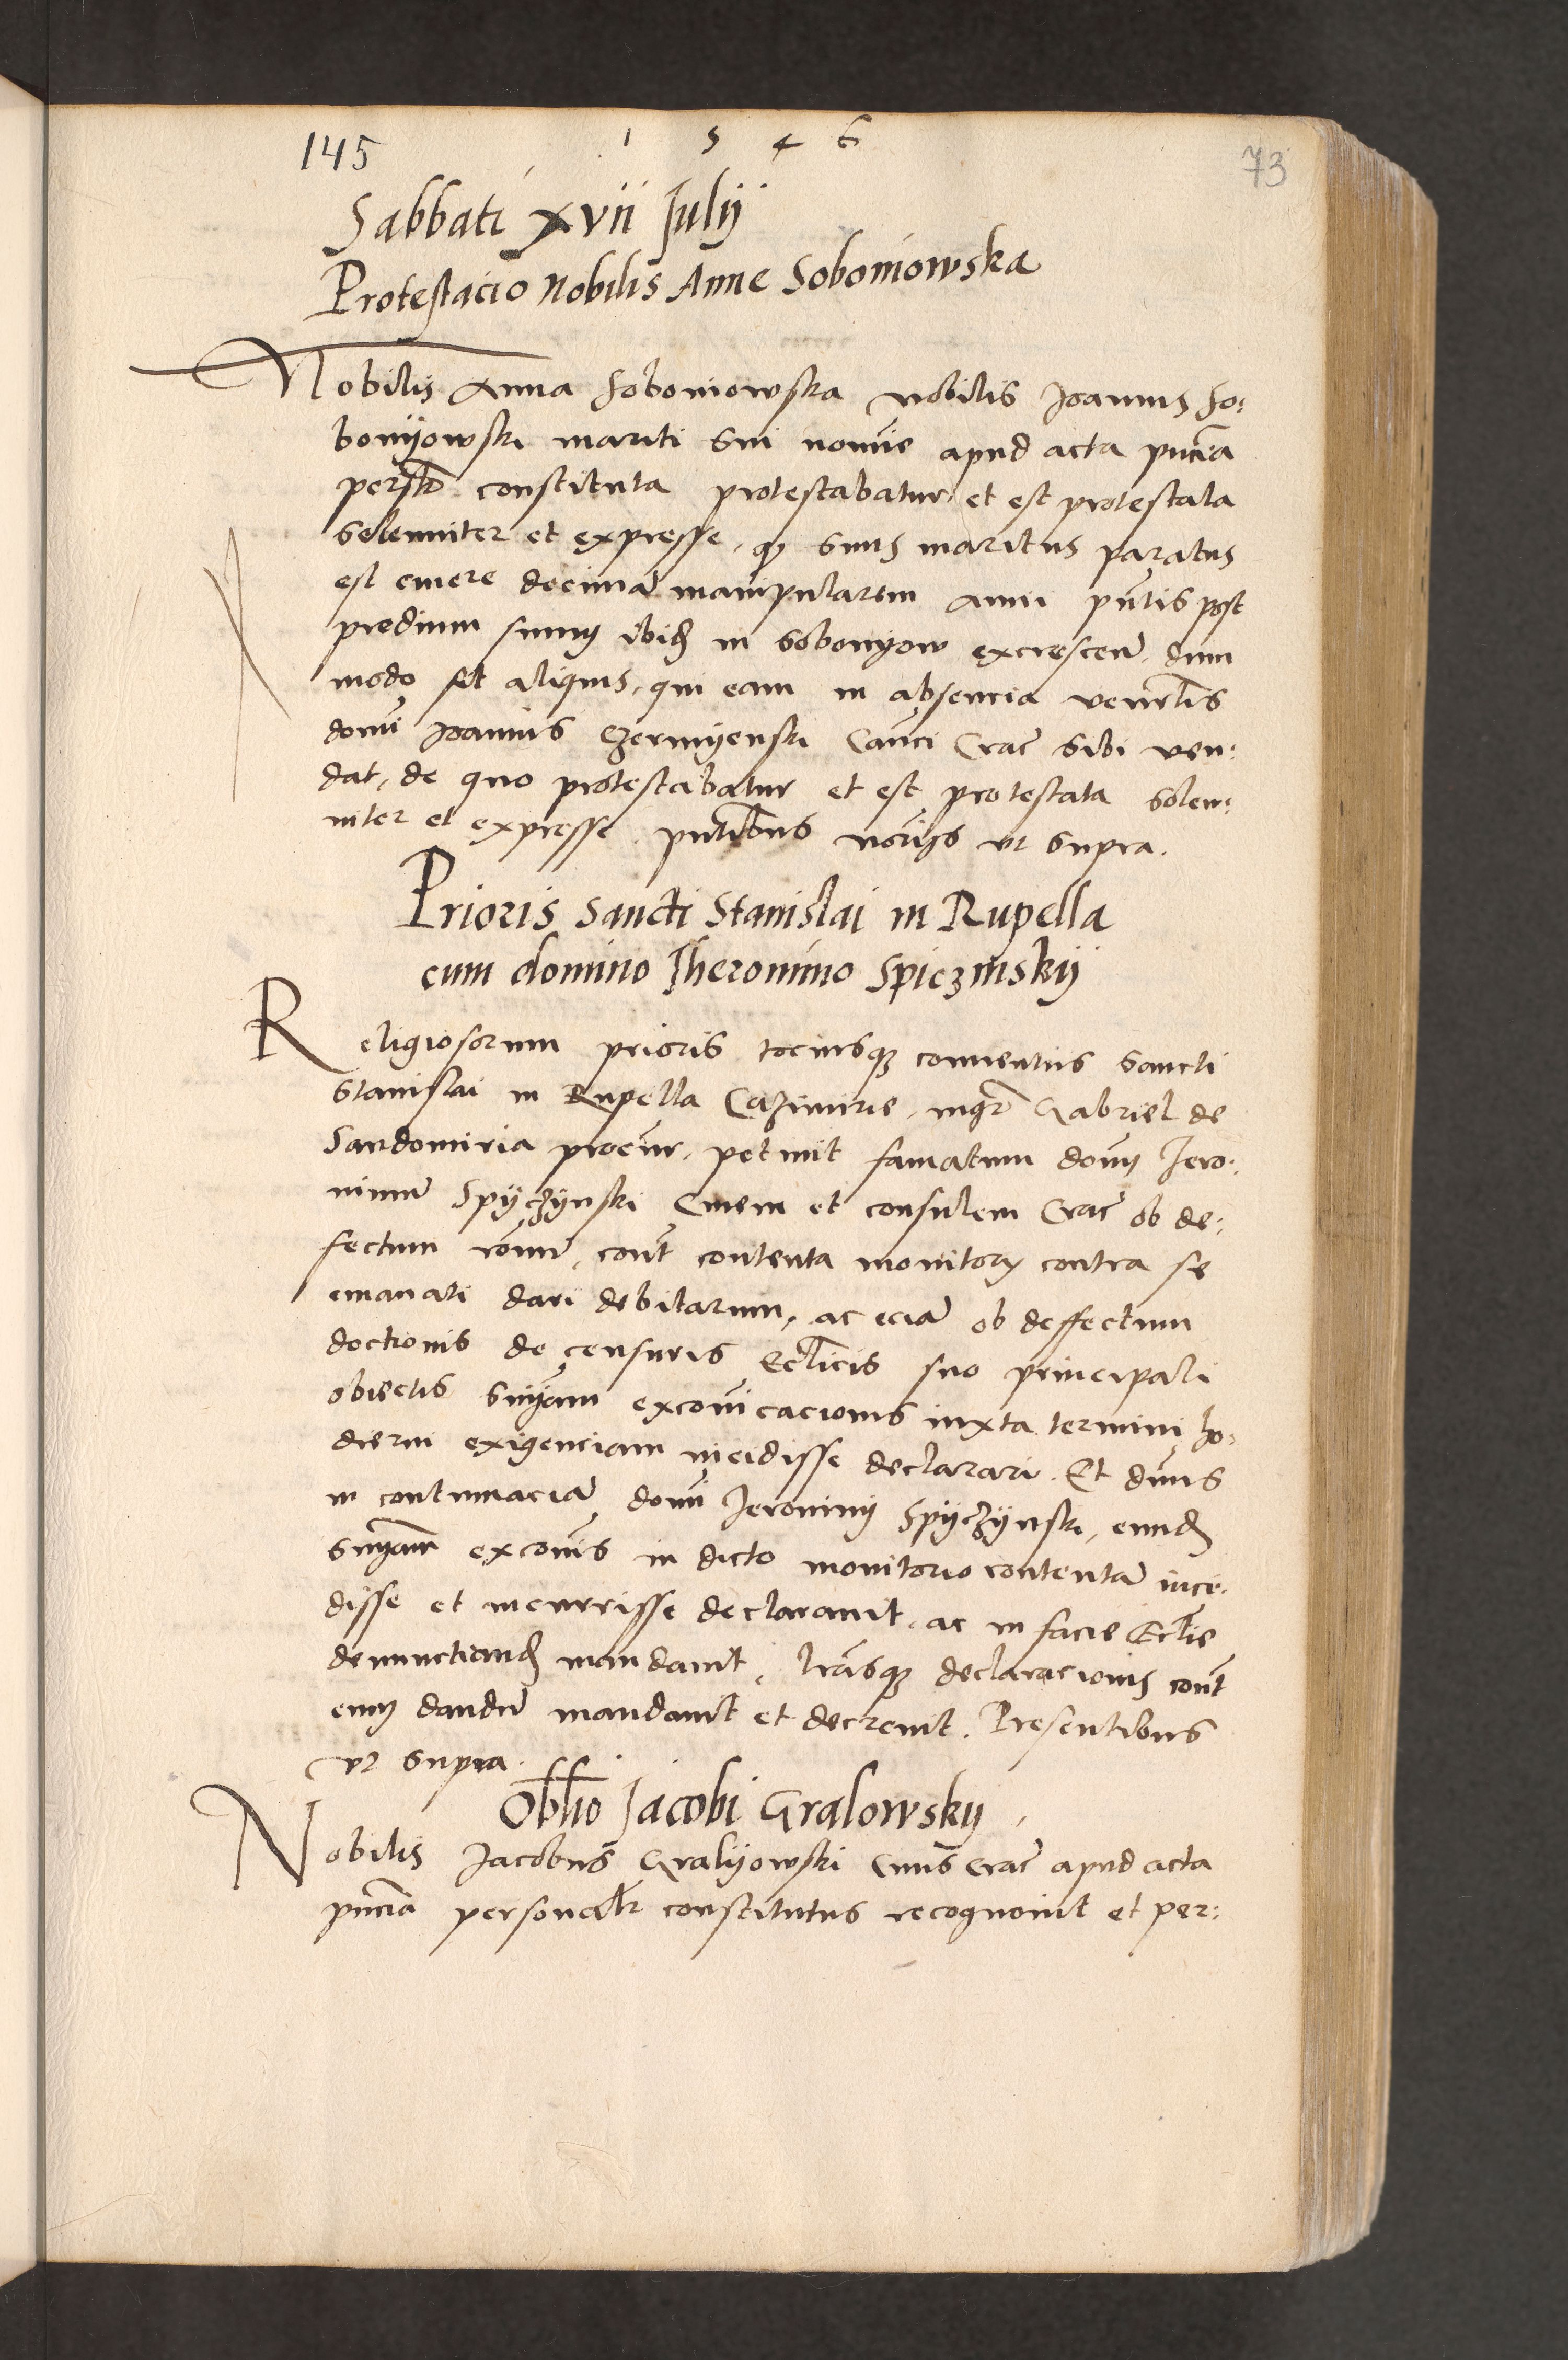 145
1 5 4 6
73
Sabbati xvii Julij
Protestacio Nobilis Anne Soboniowska
Nobilis Anna Soboniowska nobilis Joannis So:
bonyowski mariti sui nomīe apud acta pn̄cia
per̄slr constituta protestabatur et est protestata
solenniter et expresse, q suus maritus paratus
est emere decimā manipularem anni pn̄tis post
predium suum ibid in Sobonyow excrescen̄. dum
modo sit aliquis, qui eam in absencia ven̄rlis
domi Joannis Czermyenski Can̄ci Crac̄ sibi ven:
dat, de quo protestabatur et est protestata solen:
niter et expresse. pn̄tibus nor̄ijs vt supra.
Prioris Sancti Stanislai in Rupella
cum domino Jheronimo Spiczinskij
Religiosorum prioris tociusq conuentus Sancti
Stanislai in Rupella Cazimirie, mgr̄ Gabriel de
Sandomiria procur̄, petiuit famatum dom̄ Jero:
nimū Spyczynski Ciuem et consulem Crac̄ ob de:
fectum rōnū, cont̄ contenta monitorij contra se
emanati dari debitarum, ac eciā ob deffectum
doctionis de censuris Eccl̄icis suo principali
obiectis sn̄iam excom̄icacionis iuxta termini ho:
dierni exigenciam incidisse declarari. Et dn̄us
in contumaciā domi Jeronimi Spyczynski, eund
sn̄iam excom̄is in dicto monitorio contentā inci:
disse et incurrisse declarauit, ac in facie Eccl̄ie
denunctiand mandauit, lr̄asq declaracionis cont̄
eum dandū mandauit et decreuit. Presentibus
vt supra.
Obl̄io Jacobi Gralowsky
Nobilis Jacobus Gralyowski Ciuis Crac̄ apud acta
pn̄cia personalr̄ constitutus recognouit et per: